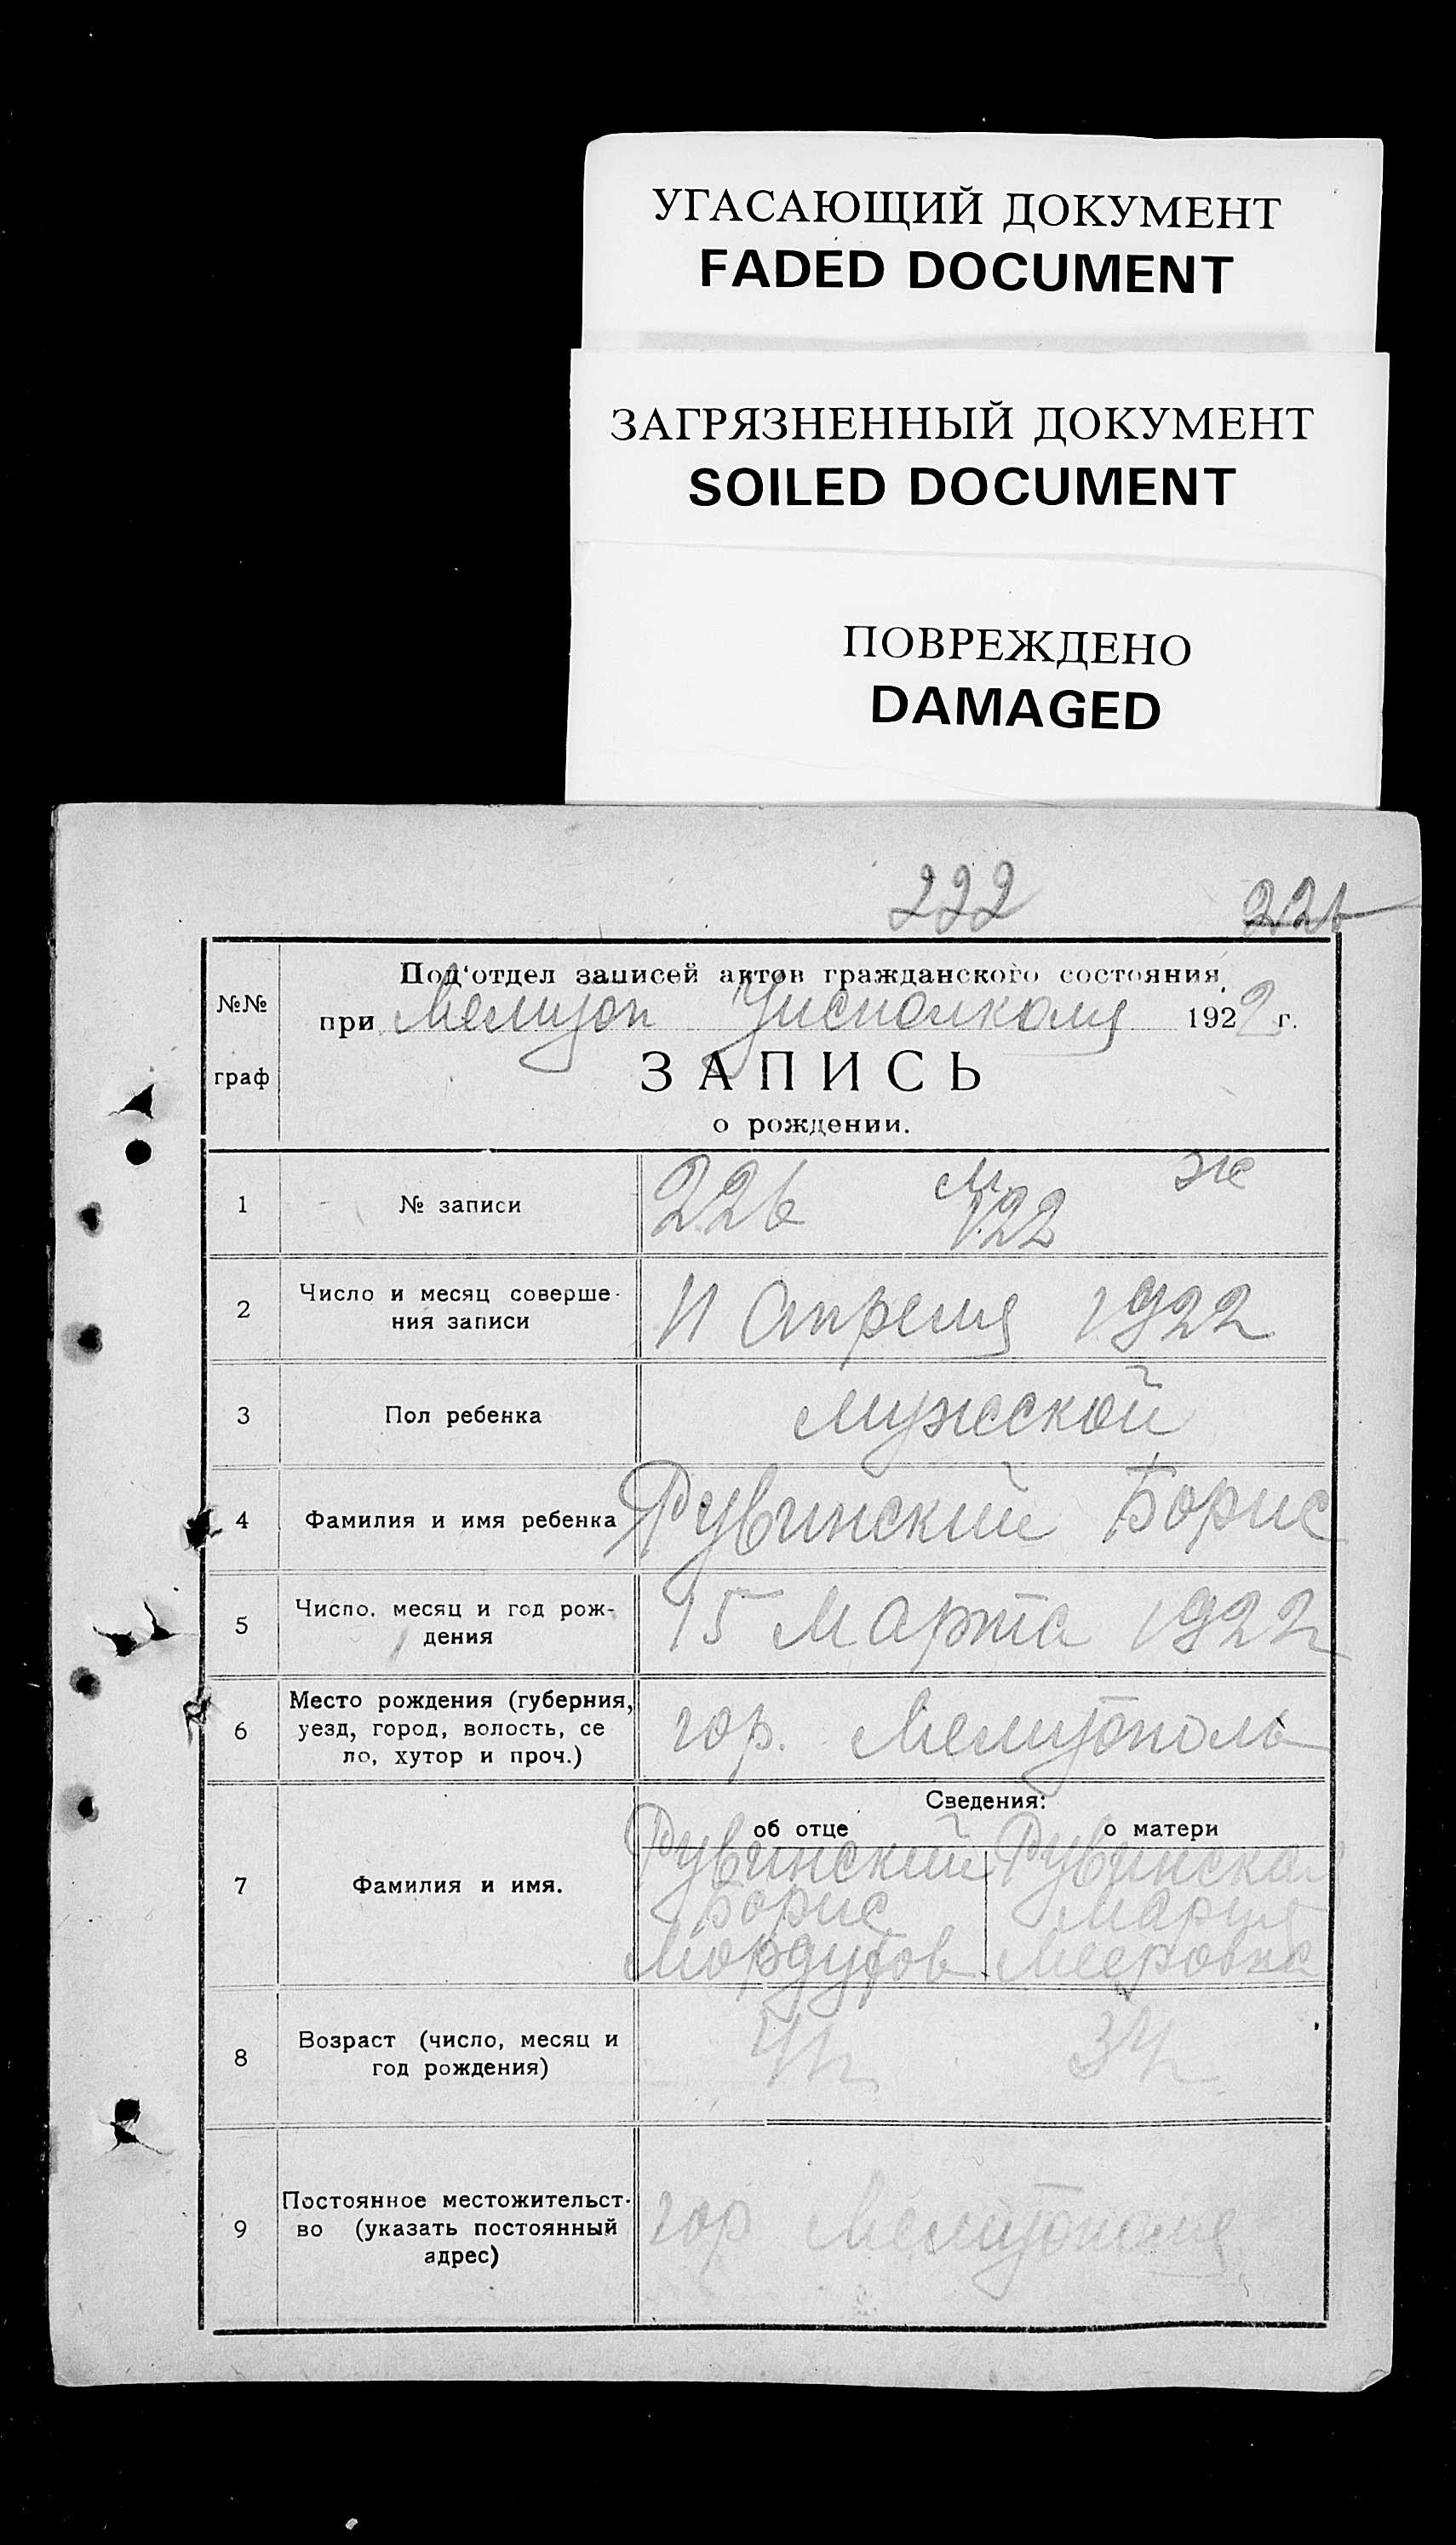 УГАСАЮЩИЙ ДОКУМЕНТ
FADED DOCUMENT
ЗАГРЯЗНЕННЫЙ ДОКУМЕНТ
SOILED DOCUMENT
ПОВРЕЖДЕНО
DAMAGED
222 226
№№ граф
Под'отдел записей актов гражданского состояния
при Мелитоп Уисполкома 1922 г.
ЗАПИСЬ
о рождении.
1 № записи 226 м. 122 ж
2 Число и месяц соверше-
ния записи
11 Апреля 1922
3 Пол ребенка мужеской
4 Фамилия и имя ребенка Рувинский Борис
5 Число, месяц и год рож-
дения
15 Марта 1922
6 Место рождения (губерния,
уезд, город, волость, се
ло, хутор и проч.)
гор. Мелитополь
Сведения:
об отце о матери
7 Фамилия и имя.
Рувинский Рувинская
Борис Мария
Мордухов Мееровна
8 Возраст (число, месяц и
год рождения)
34
9 Постоянное местожительст-
во (указать постоянный
адрес)
гор Мелитополя